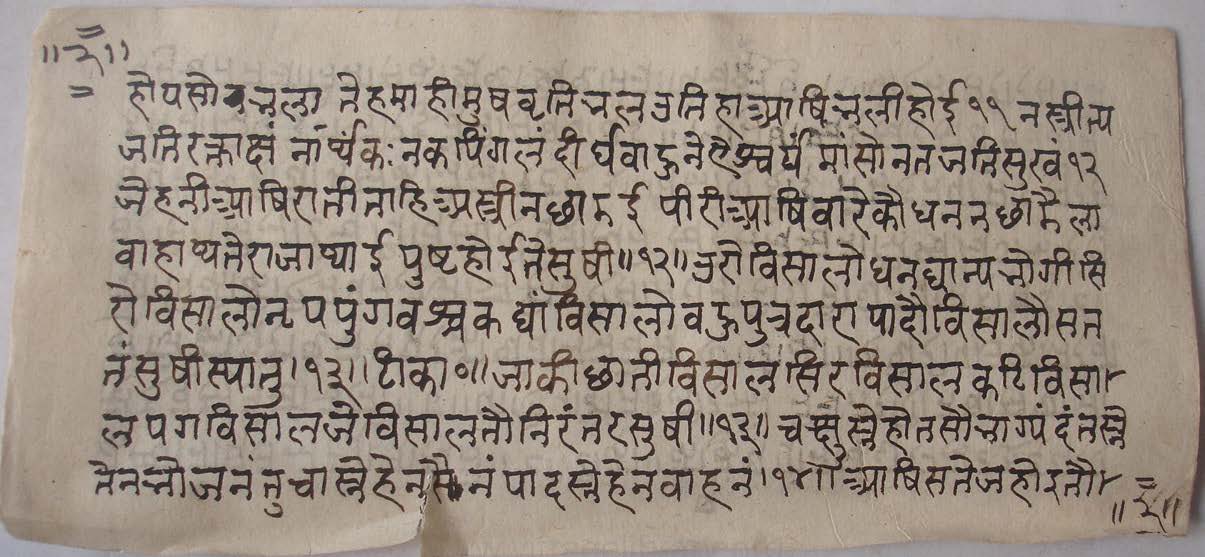 ॥३॥
होय सो भला नेहमा ही मुष वृति भल अति हा आषि भली होई ११ न स्त्री त्य
जति रक्ताक्षं नार्थकः नकपिंगलं दीर्घवाहु नेहैश्वर्यं मांसोनतजतिसुखं १२
जेहनी आषि राती ताहि अस्त्री न छाडई पीरी आषि वारे कौ धन न छाडै ला
वा हाथ तेराजा थाई पुष्ट होई ते सुषी॥१२॥ उरो विसालो धनधान्य भोगी सि
रो विसालो नृपपुंगवश्च कट्यां विसालो वहु पुत्रदारा पादौ विसालौ सत
तं सुषी स्यात्।१३॥ टीका०॥ जाकी छाती विसाल सिर विसाल कटि विसा
ल पग विसाल जे विसाल तौ निरंतर सुषी॥१३॥ चक्षुस्नेहोत सौभाग्यं दंतस्ने
हेन भोजनं तुचा स्नेहेन सैनं पादस्नेहेन वाहनं।१४॥ आषि सतेज होइ तौ
॥३॥